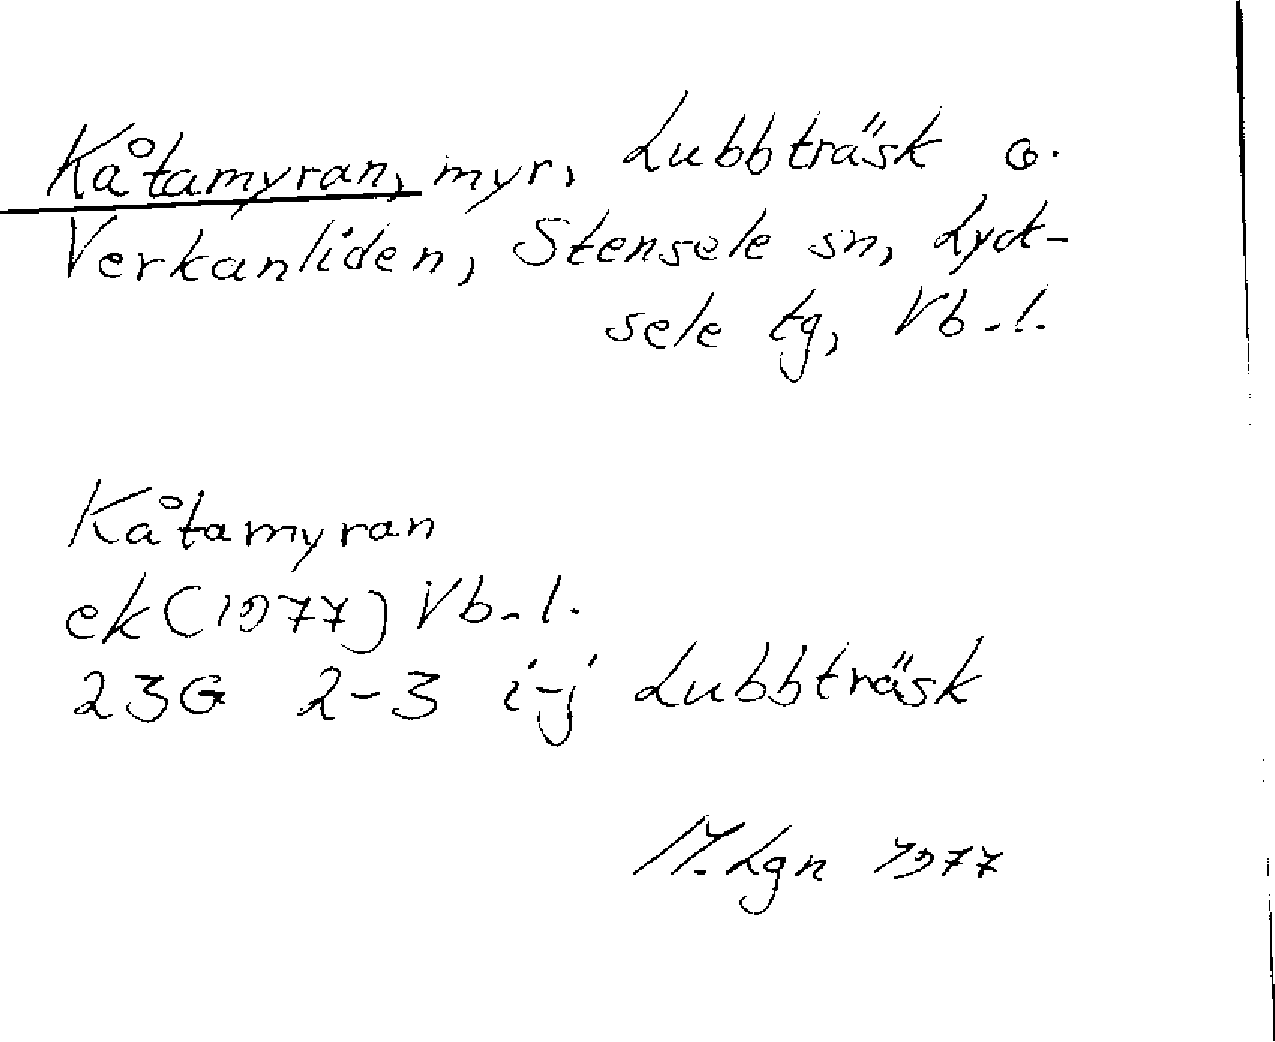 Kåtamyran, myr, Lubbträsk o.
Verkanliden, Stensele sn, Lyck-
sele tg, Vb-l.
Kåtamyran
ek (1977) Vb-l.
23G 2-3 i-j Lubbträsk
M. Lgn 1977